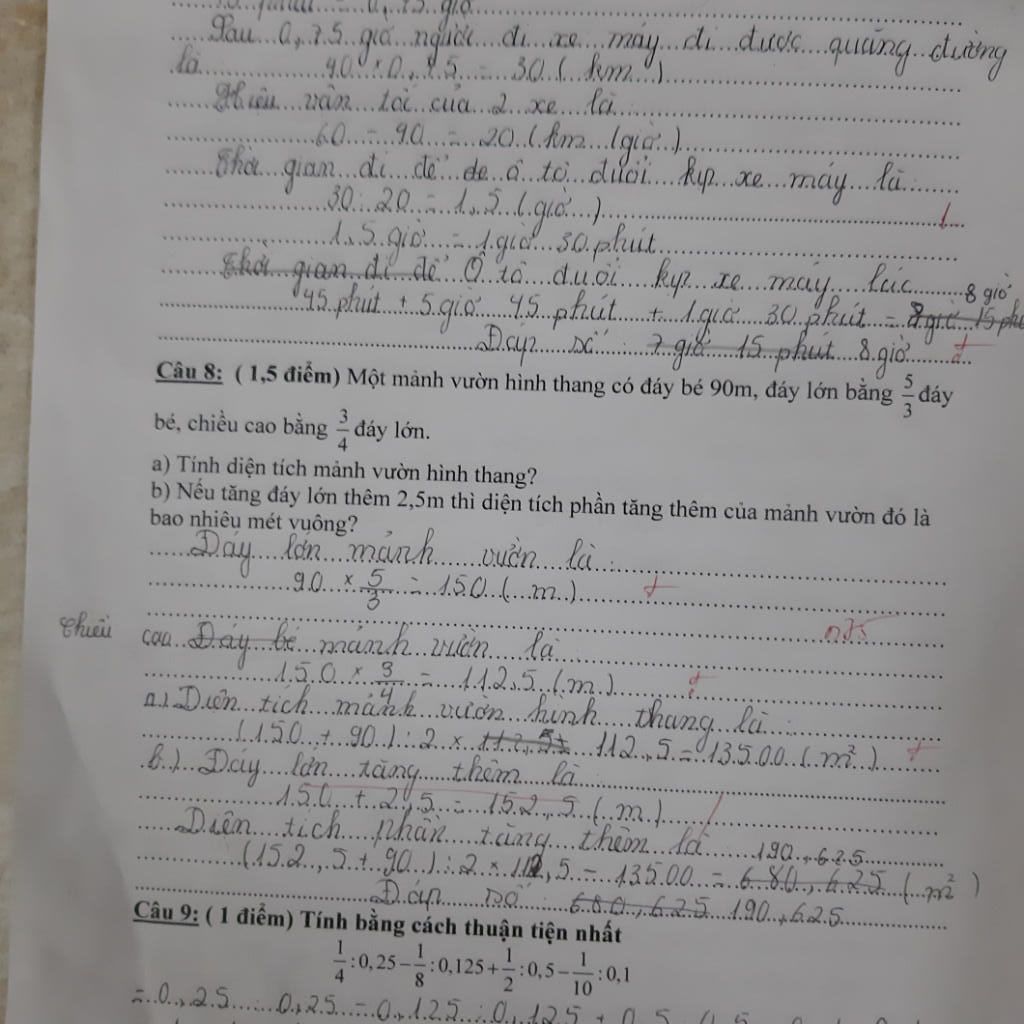 giờ
Sau 0,75 giờ người đi xe máy đi được quãng đường
là 40 × 0,75 = 30 (km)
Hiệu vân tốc của 2 xe là
60 - 40 = 20 (km/giờ)
Thời gian đi để ô tô đuổi kịp xe máy là
30 : 20 = 1,5 (giờ)
1,5 giờ = 1 giờ 30 phút
Thời gian đi để Ô tô đuổi kịp xe máy lúc 8 giờ
45 phút + 5 giờ 45 phút + 1 giờ 30 phút = 8 giờ 15 phú
Đáp số : 7 giờ 15 phút 8 giờ
Câu 8: ( 1,5 điểm) Một mảnh vườn hình thang có đáy bé 90m, đáy lớn bằng 5/3 đáy
bé, chiều cao bằng 3/4 đáy lớn.
a) Tính diện tích mảnh vườn hình thang?
b) Nếu tăng đáy lớn thêm 2,5m thì diện tích phần tăng thêm của mảnh vườn đó là
bao nhiêu mét vuông?
Đáy lớn mảnh vườn là
90 × 5/3 = 150 (m)
Chiều cao Đáy bé mảnh vườn là
150 × 3/4 = 112,5 (m)
a) Diên tích mảnh vườn hình thang là
(150 + 90) : 2 × 112,5 = 13500 (m²)
b) Đáy lớn tăng thêm là
150 + 2,5 = 152,5 (m)
Diên tích phần tăng thêm là 190,625
(152,5 + 90) : 2 × 112,5 - 13500 = 680,625 (m²)
Đáp số : 680,625 190,625
Câu 9: ( 1 điểm) Tính bằng cách thuận tiện nhất
1/4 : 0,25 − 1/8 : 0,125 + 1/2 : 0,5 − 1/10 : 0,1
= 0,25 : 0,25 - 0,125 : 0,125 + 0,5